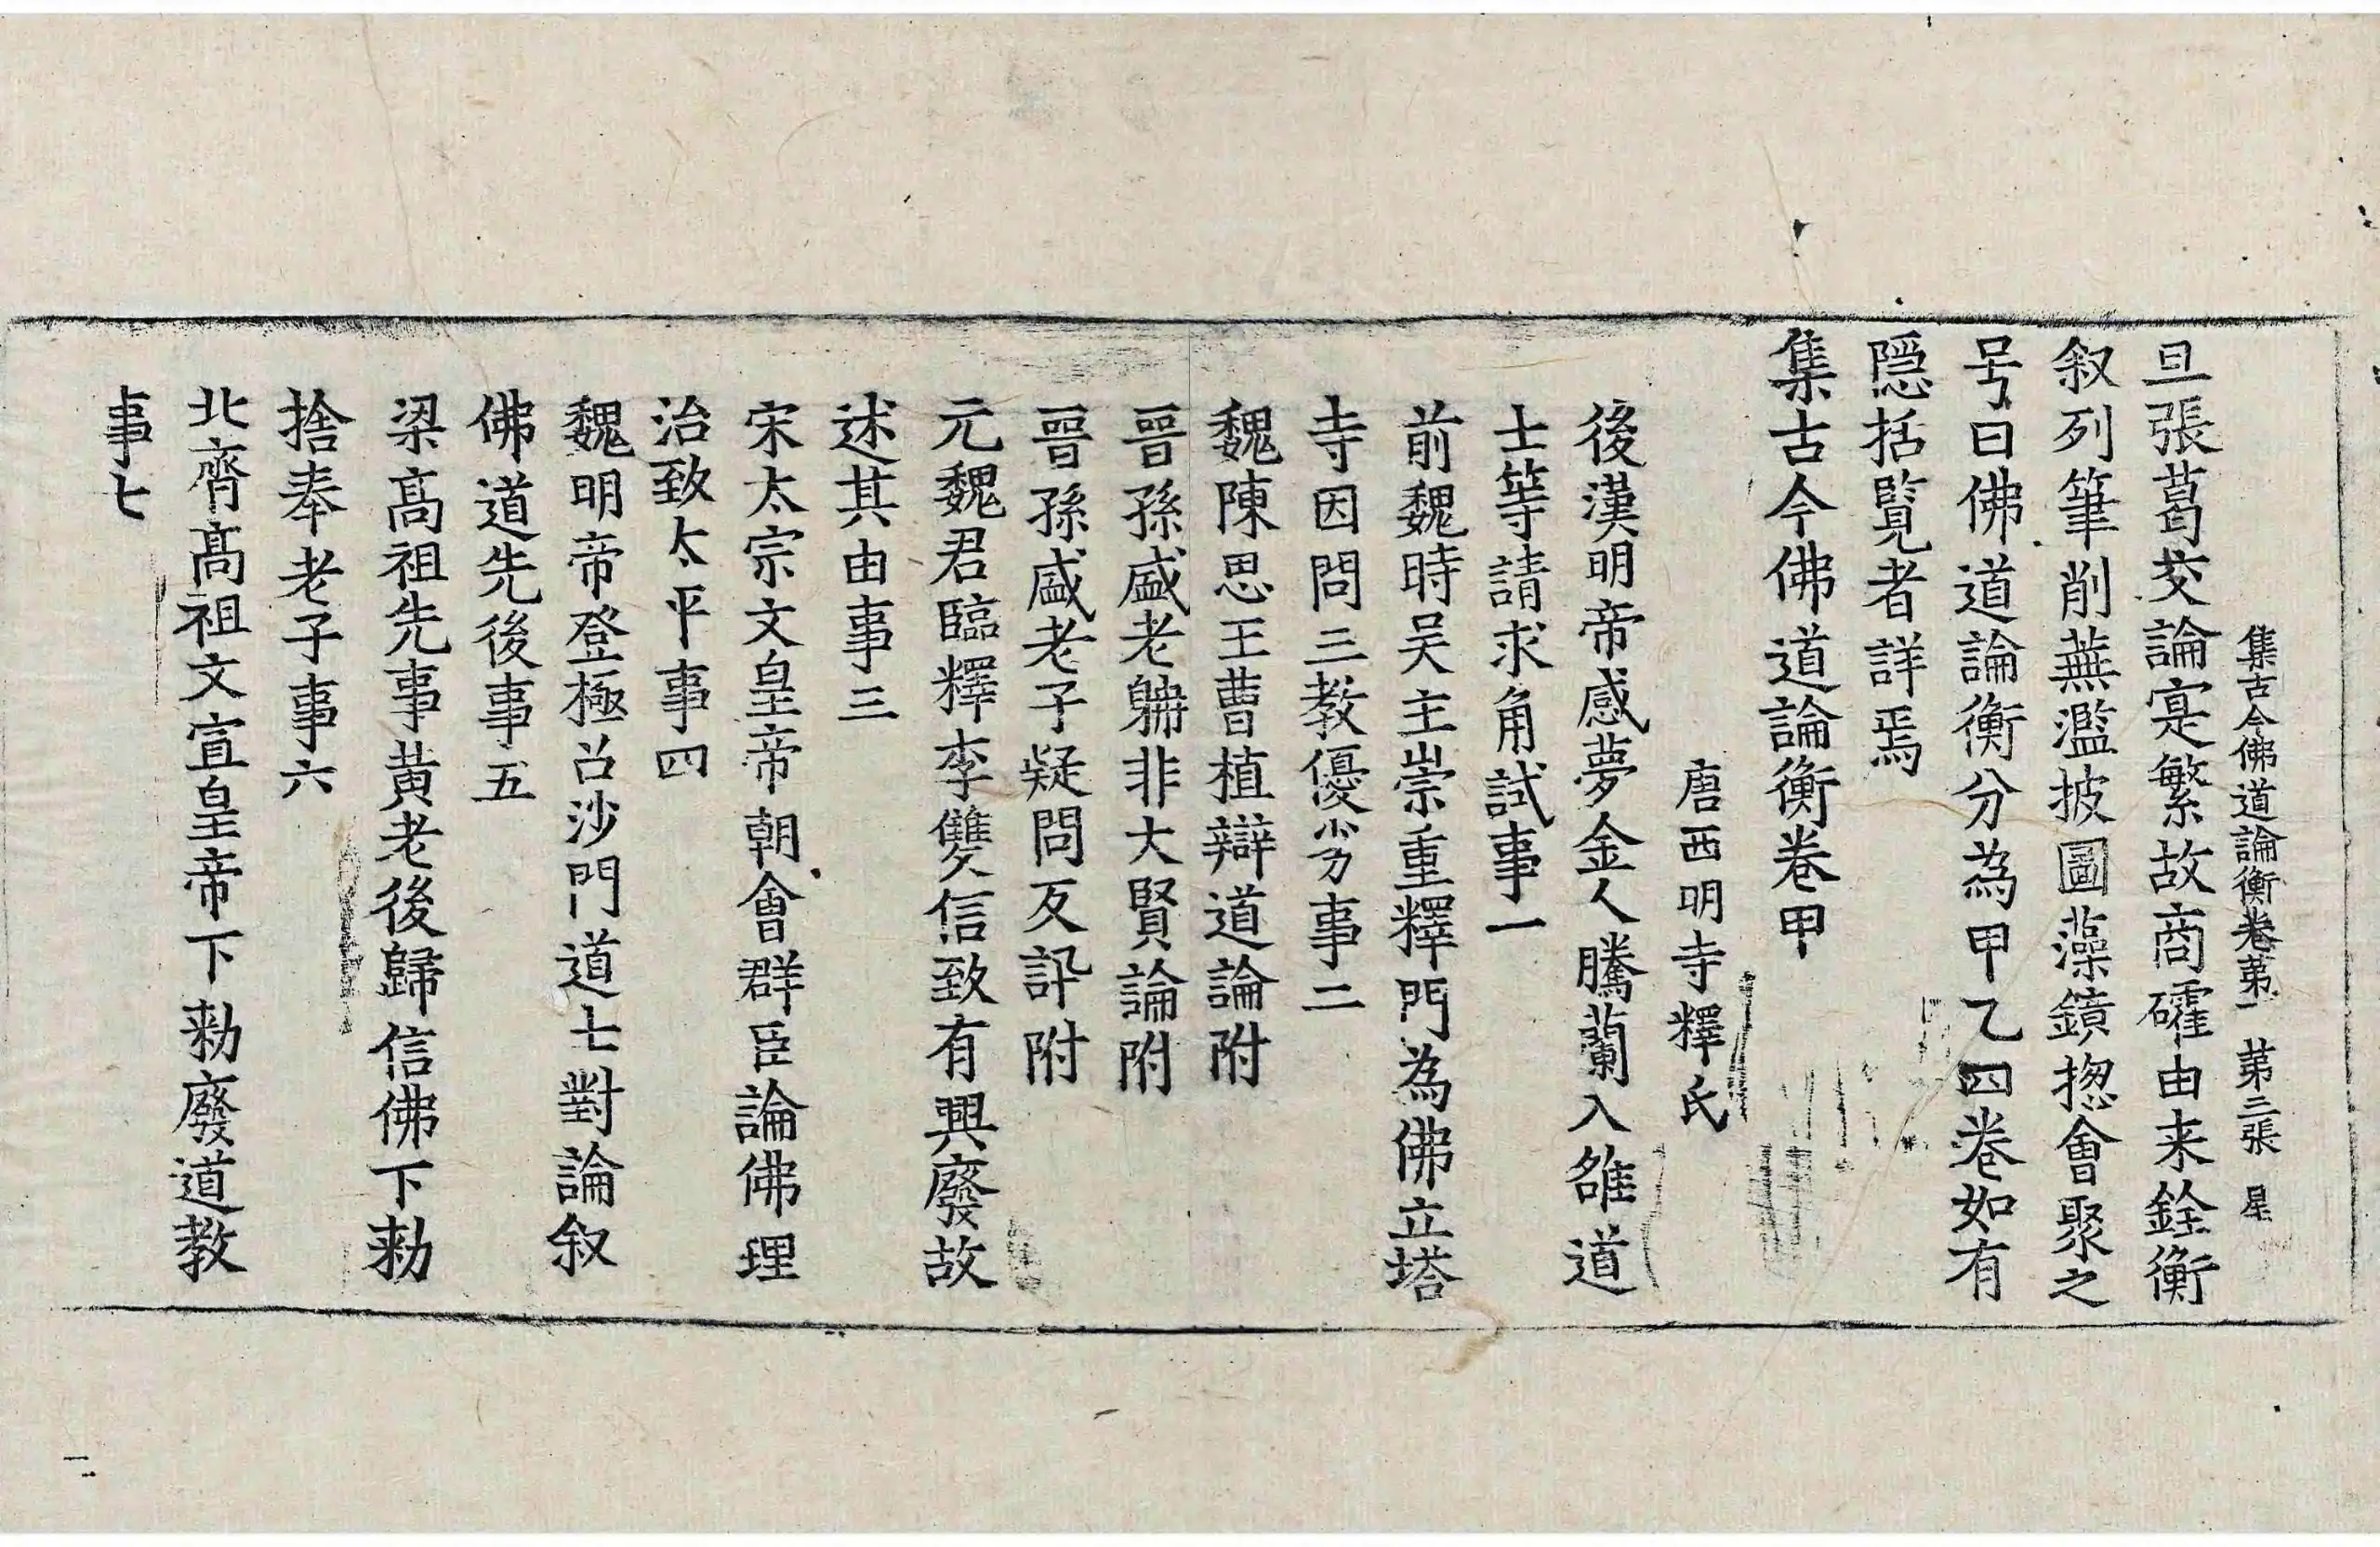 集古今佛道論衡卷苐一　苐三張　星
旦張葛交論寔繁故商礭由来銓衡
叙列筆削蕪濫披圖藻鏡揔會聚之
号曰佛道論衡分為甲乙四卷如有
隱括覧者詳焉
集古今佛道論衡卷甲
唐西明寺釋氏
後漢明帝感夢金人騰蘭入雒道
士等請求角試事一
前魏時吴主崇重釋門為佛立塔
寺因問三教優劣事二
魏陳思王曹植辯道論附
晉孫盛老聃非大賢論附
晉孫盛老子疑問反訊附
元魏君臨釋李雙信致有興廢故
述其由事三
宋太宗文皇帝朝會群臣論佛理
治致太平事四
魏明帝登極召沙門道士對論叙
佛道先後事五
梁髙祖先事黄老後歸信佛下勑
捨奉老子事六
北齊髙祖文宣皇帝下勑廢道教
事七